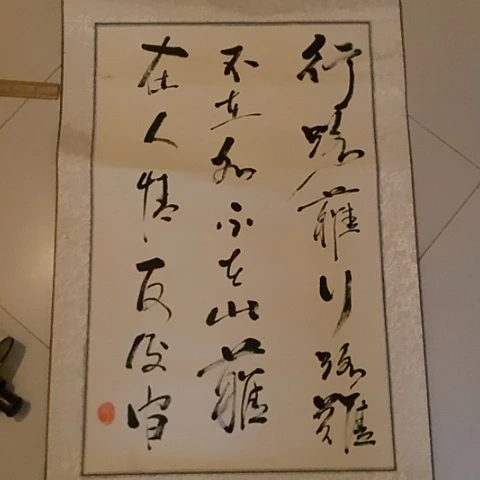 行路難行路難
不在水不在山難
在人情反復間